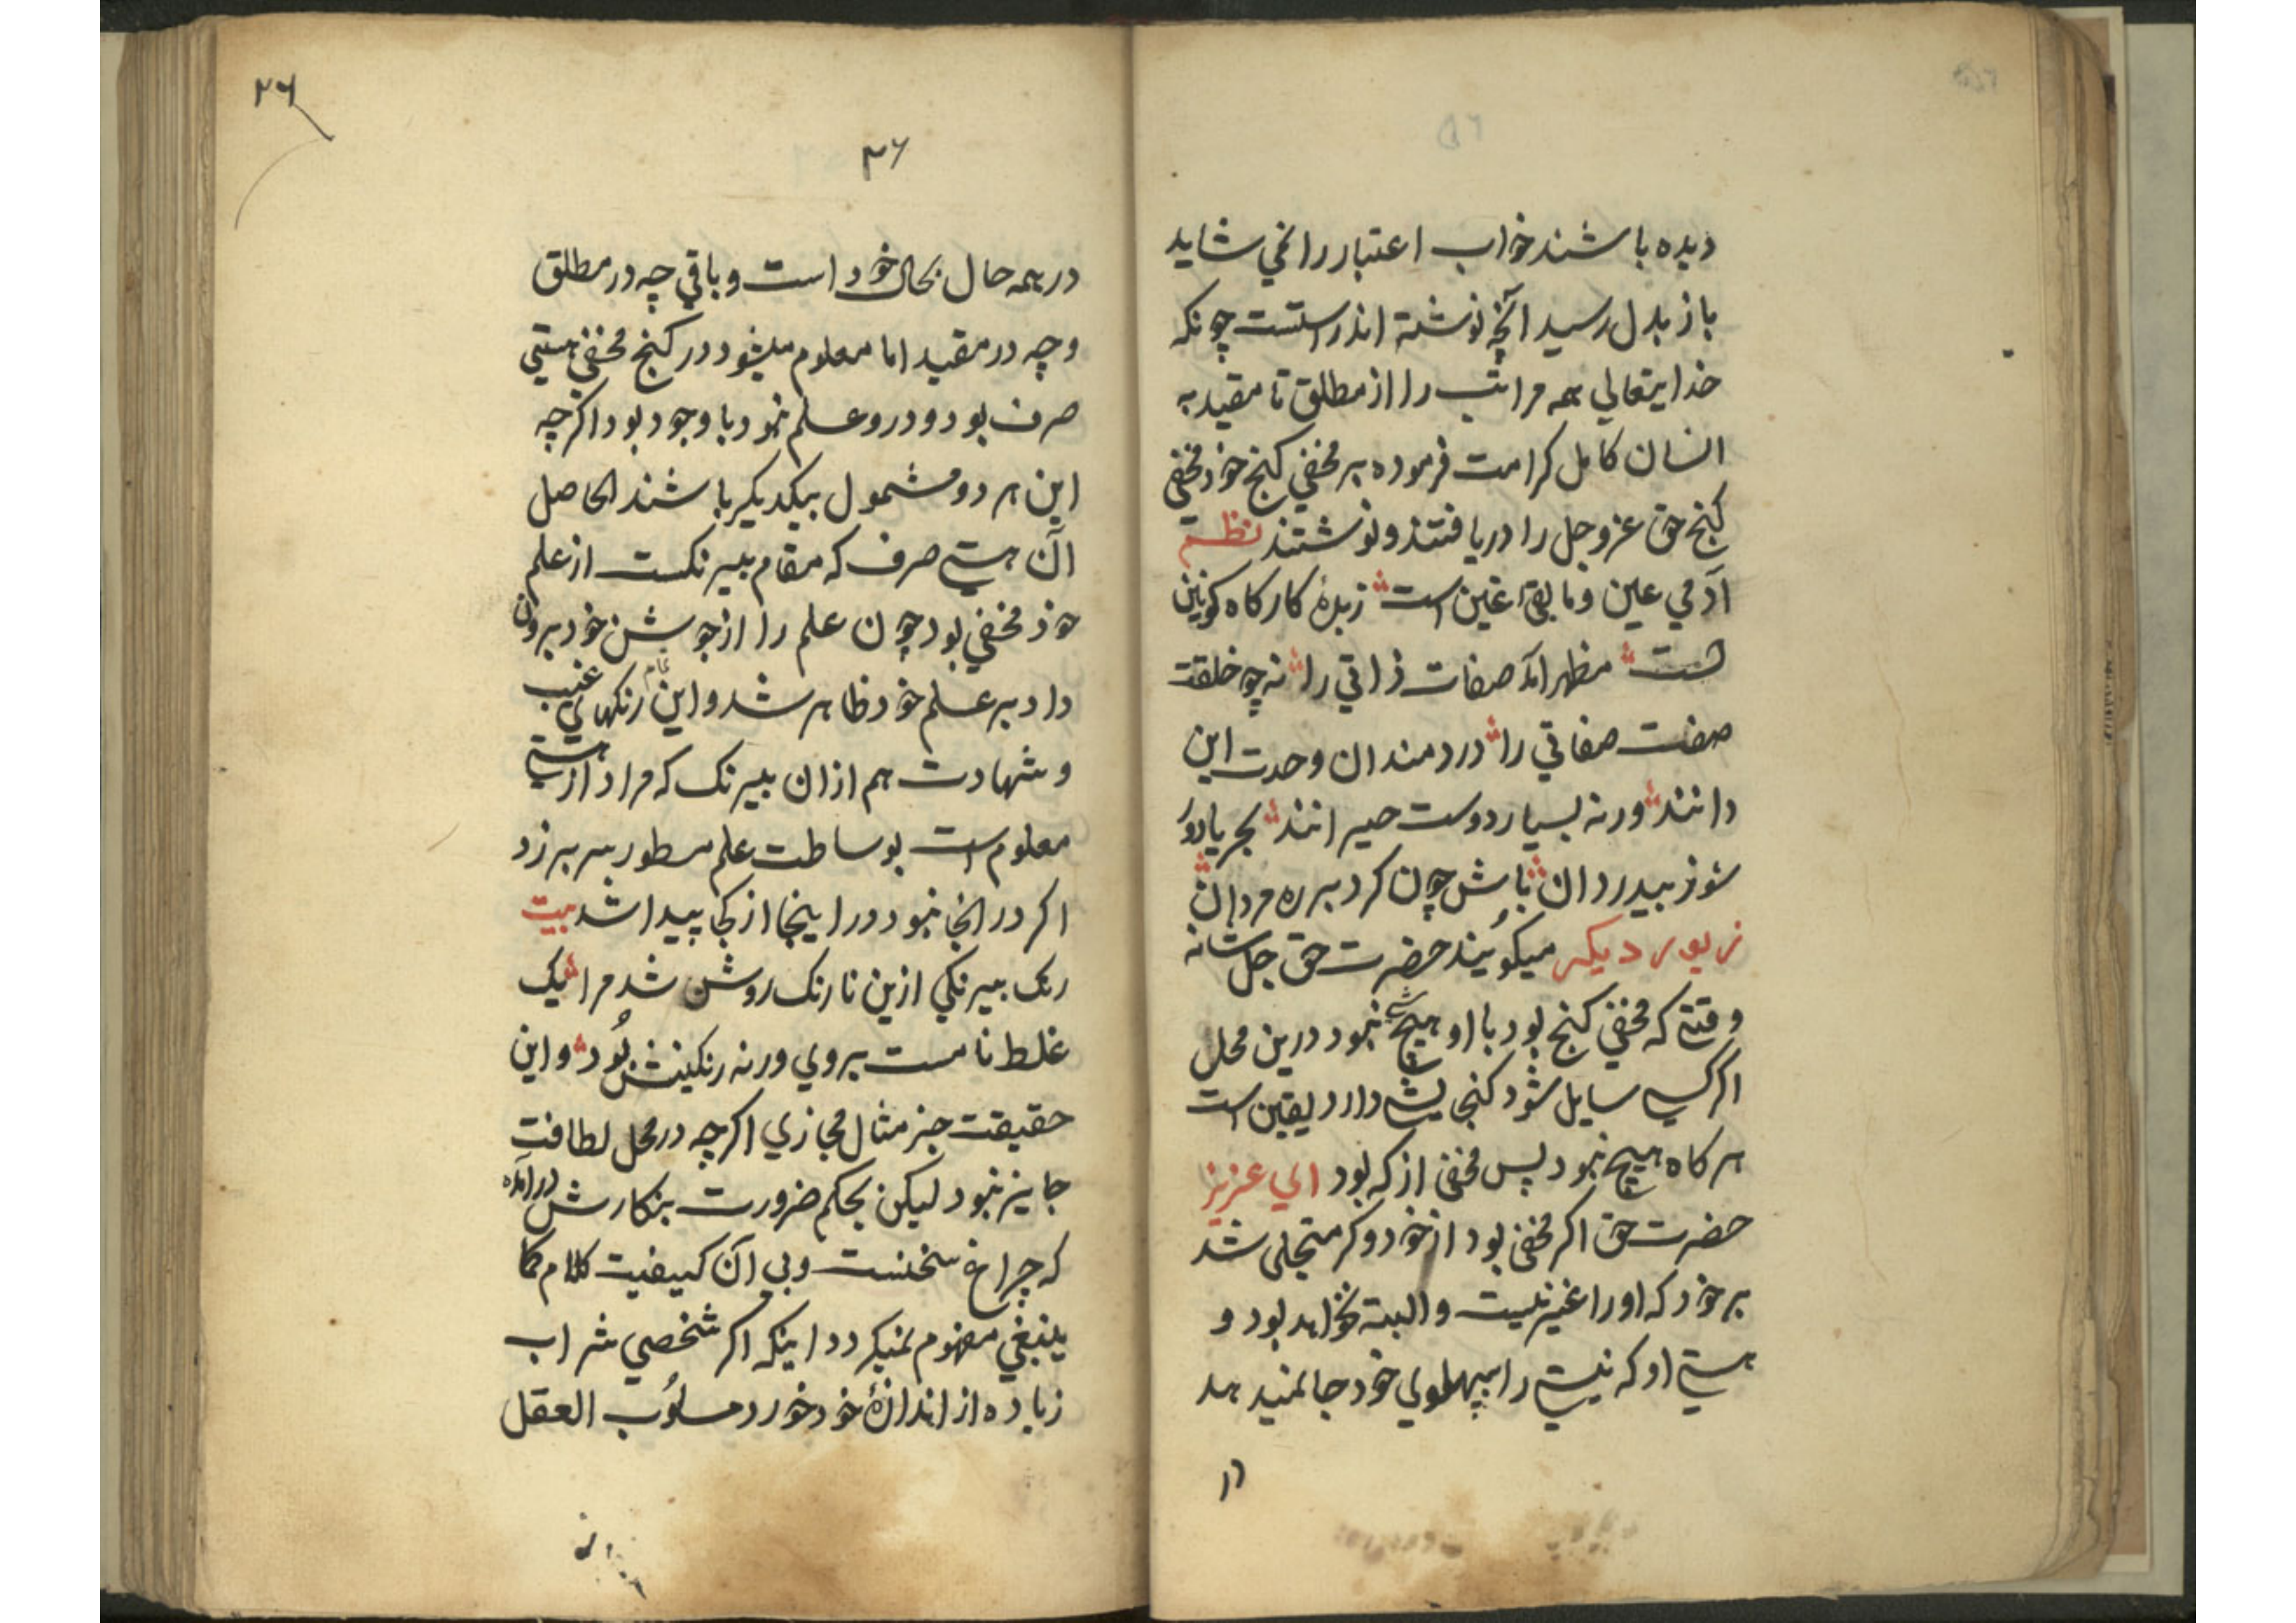 دیده باشند خواب اعتبار را نمي شاید
باز بدل رسید آنچه نوشته اند راستست چونکه
خدایتعالي همه مراتب را از مطلق تا مقید به
انسان کامل کرامت فرموده بر مخفي کنج خود مخفي
کنج حق عزوجل را دریافتند و نوشتند نظم
آدمي عین و مابقي غین است زبدۀ کارکاه کونین
است مظهر آمد صفات ذاتي را نه چو خلقت
صفت صفاتي را دردمندان وحدت این
دانند ورنه بسیار دوست حیرانند بحر یا دور
شو ز بیدردان باش چون کرد بر ره مردان
زیور دیکر میکوُیند حضرت حق جل شانه
وقتے که مخفي کنج بود با او هیچ شے نبود درین محل
اکر کسے سایل شود کنجایشے دارد یقین است
هر کاه هیچ نبود پس مخفي از که بود اي عزیز
حضرت حق اکر مخفي بود از خود و کر متجلی شد
بر خود که اورا غیر نیست و البته نخواهد بود و
هستے او که نیستے را بپهلوي خود جا نمیدهد
۲۶
۲۶
در همه حال بحال خود است و باقي چه در مطلق
و چه در مقید اما معلوم میشود در کنج مخفي هستي
صرف بود و درو علم نمود با وجود بود اکرچه
این هر دو مشمول بیکدیکر باشند الحاصل
آن هستے صرف که مقام بیرنکست از علم
خود مخفي بود چون علم را از جوشش خود برون
داد بر علم خود ظاهر شد و این تمام رنکهائي غیب
و شهادت هم ازان بیرنک که مراد از هستے
معلوم است بوساطت علم مسطور سر بر زد
اکر در انجا نبود در اینجا از کجا پیدا شد بیت
رنک بیرنکي ازین نا رنک روشن شد مرا لیک
غلط نامست بر وي ورنه رنکینش بُود و این
حقیقت جز مثال مجازي اکرچه در محل لطافت
جایز نبود لیکن بحکم ضرورت بنکارش درآمده
که چراغ سخنست و بي آن کیفیت کلام کما
ینبغي مفهوم نمیکردد اینکه اکر شخصي شراب
زیاده از اندازۀ خود خورد مسلوُب العقل